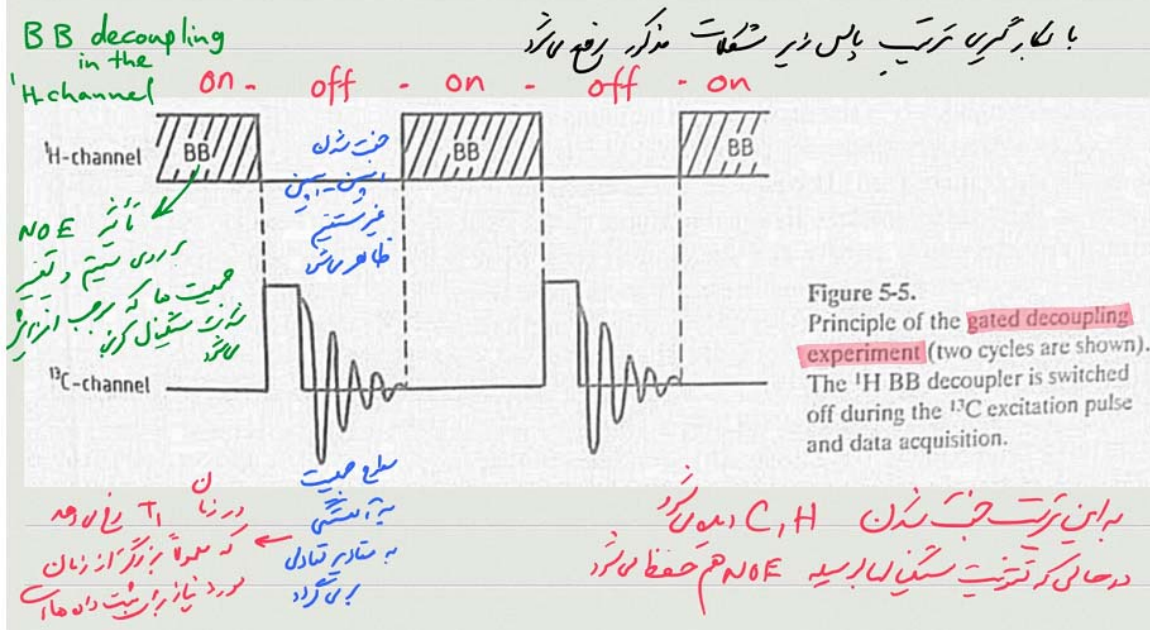 BB decoupling
in the
¹H-channel
با بکارگیری ترتیب پالس زیر مشکلات مذکور رفع می‌شود
on - off - on - off - on
¹H-channel
BB
BB
BB
جفت شدن
اسپین-اسپین
غیر مستقیم
ظاهر می‌شود
تأثیر NOE
بر روی سیستم و تغییر
جمعیت ها که موجب افزایش
شدت سیگنال کربن
می‌شود
¹³C-channel
Figure 5-5.
Principle of the gated decoupling
experiment (two cycles are shown).
The ¹H BB decoupler is switched
off during the ¹³C excitation pulse
and data acquisition.
سطوح جمعیت
به آهستگی
به مقادیر تعادلی
برمی‌گردد
در زمان T₁ رخ می‌دهد
که معمولاً بزرگتر از زمان
مورد نیاز برای ثبت داده هااست
به این ترتیب جفت شدن C,H دیده می‌شود
در حالی که تقویت سیگنالها بوسیله NOE هم حفظ می‌شود